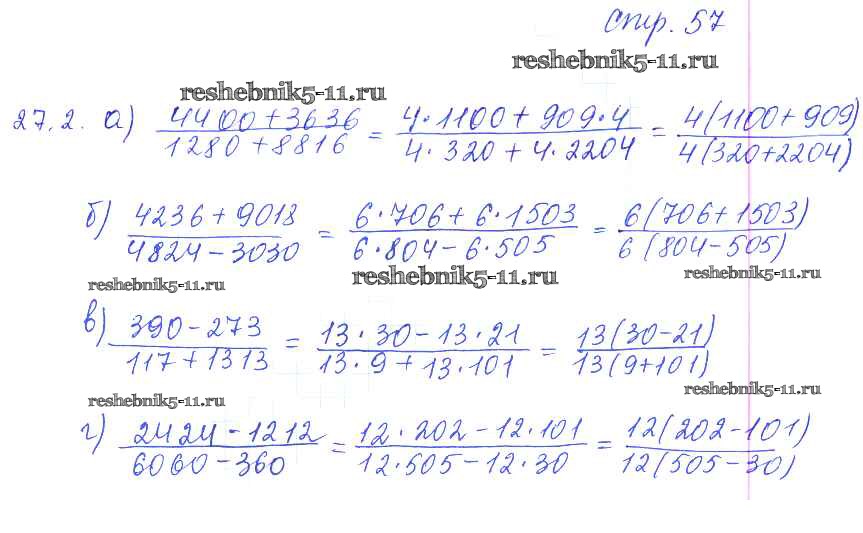 стр. 57
reshebnik5-11.ru
reshebnik5-11.ru
27.2. а) (4400+3636)/(1280+8816) = (4·1100+909·4)/(4·320+4·2204) = 4(1100+909)/4(320+2204)
б) (4236+9018)/(4824-3030) = (6·706+6·1503)/(6·804-6·505) = 6(706+1503)/6(804-505)
reshebnik5-11.ru reshebnik5-11.ru reshebnik5-11.ru
в) (390-273)/(117+1313) = (13·30-13·21)/(13·9+13·101) = 13(30-21)/13(9+101)
reshebnik5-11.ru reshebnik5-11.ru
г) (2424-1212)/(6060-360) = (12·202-12·101)/(12·505-12·30) = 12(202-101)/12(505-30)